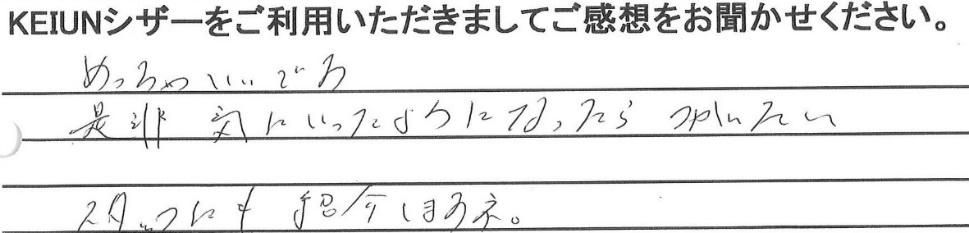 KEIUNシザーをご利用いただきましてご感想をお聞かせください。
めっちゃいいです
是非 気にいったようになったら つかいたい
スタッフにも 紹介しますネ。